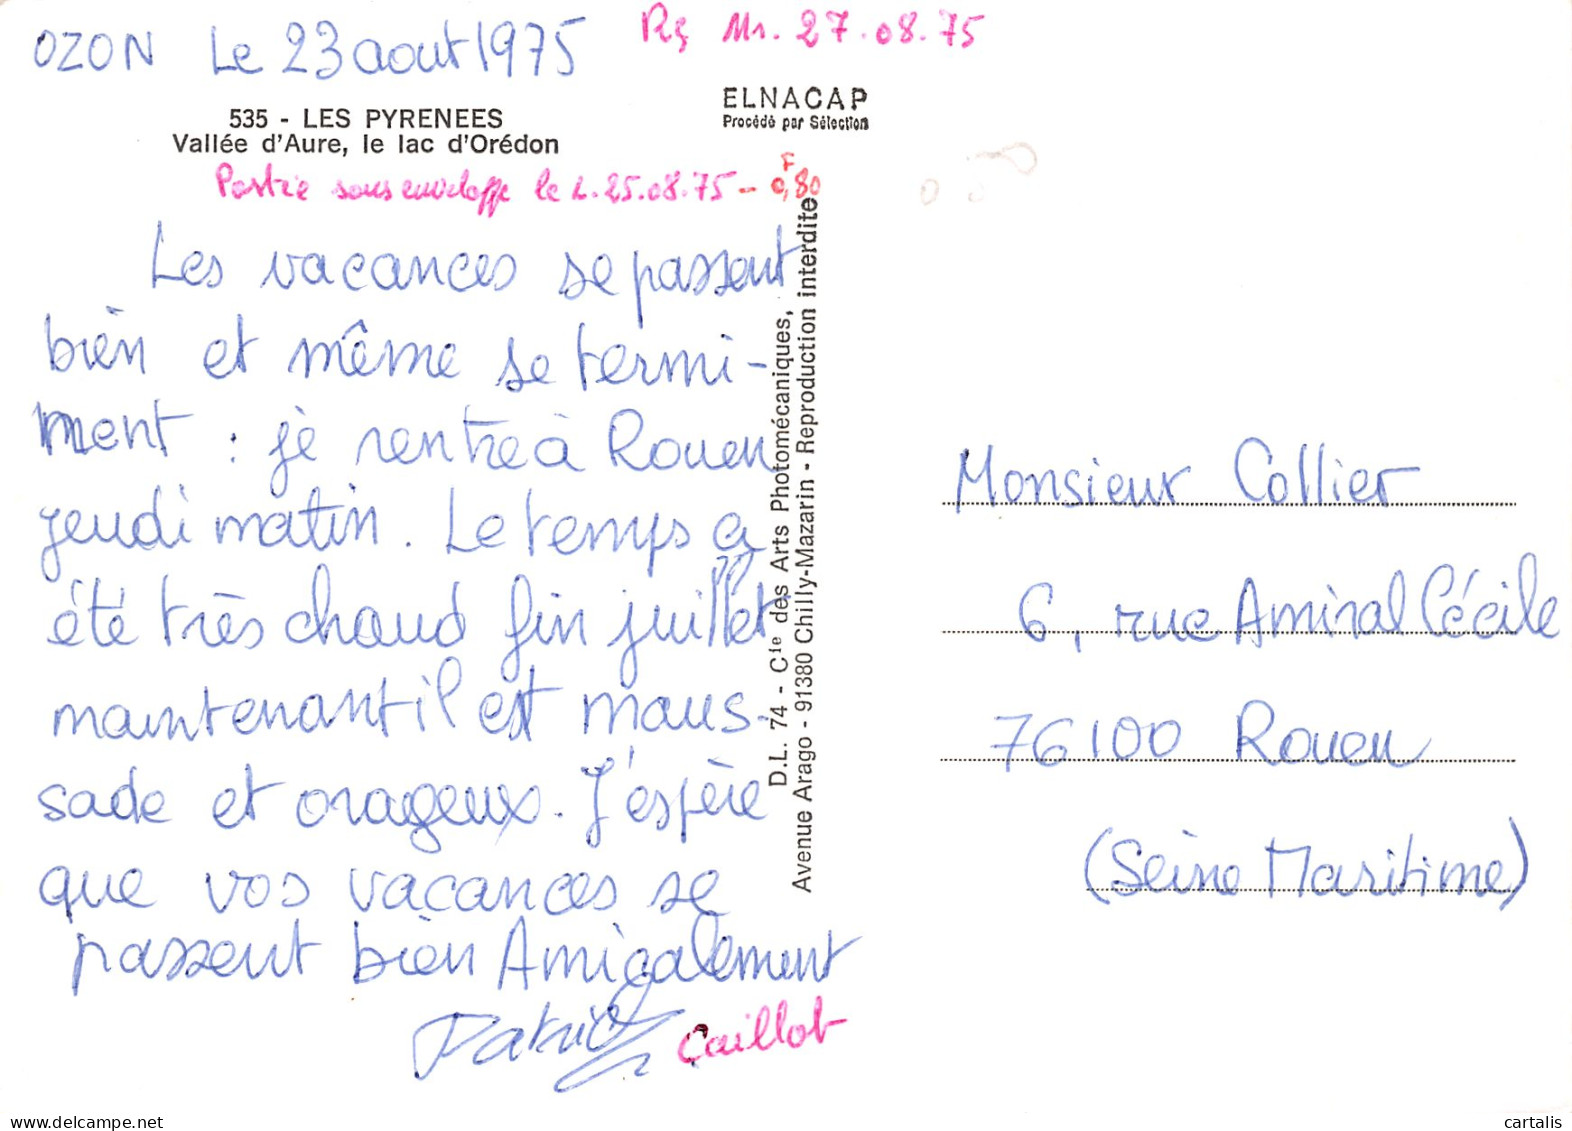 OZON Le 23 aout 1975
Rç Mr. 27.08.75
535 - LES PYRENEES
Vallée d'Aure, le lac d'Orédon
ELNACAP
Procédé par Sélection
Partie sous enveloppe le L. 25.08.75 - 0,80 F
Les vacances se passent
bien et même se termi-
ment : je rentre à Rouen
jeudi matin. Le temps a
été très chaud fin juillet
maintenant il est maus-
sade et orageux. J'espère
que vos vacances se
passent bien Amicalement
Patrick Caillot
D.L. 74 - Cie des Arts Photomécaniques,
Avenue Arago - 91380 Chilly-Mazarin - Reproduction interdite
Monsieur Collier
6, rue Amiral Cécile
76100 Rouen
(Seine Maritime)
delcampe.net
cartalis